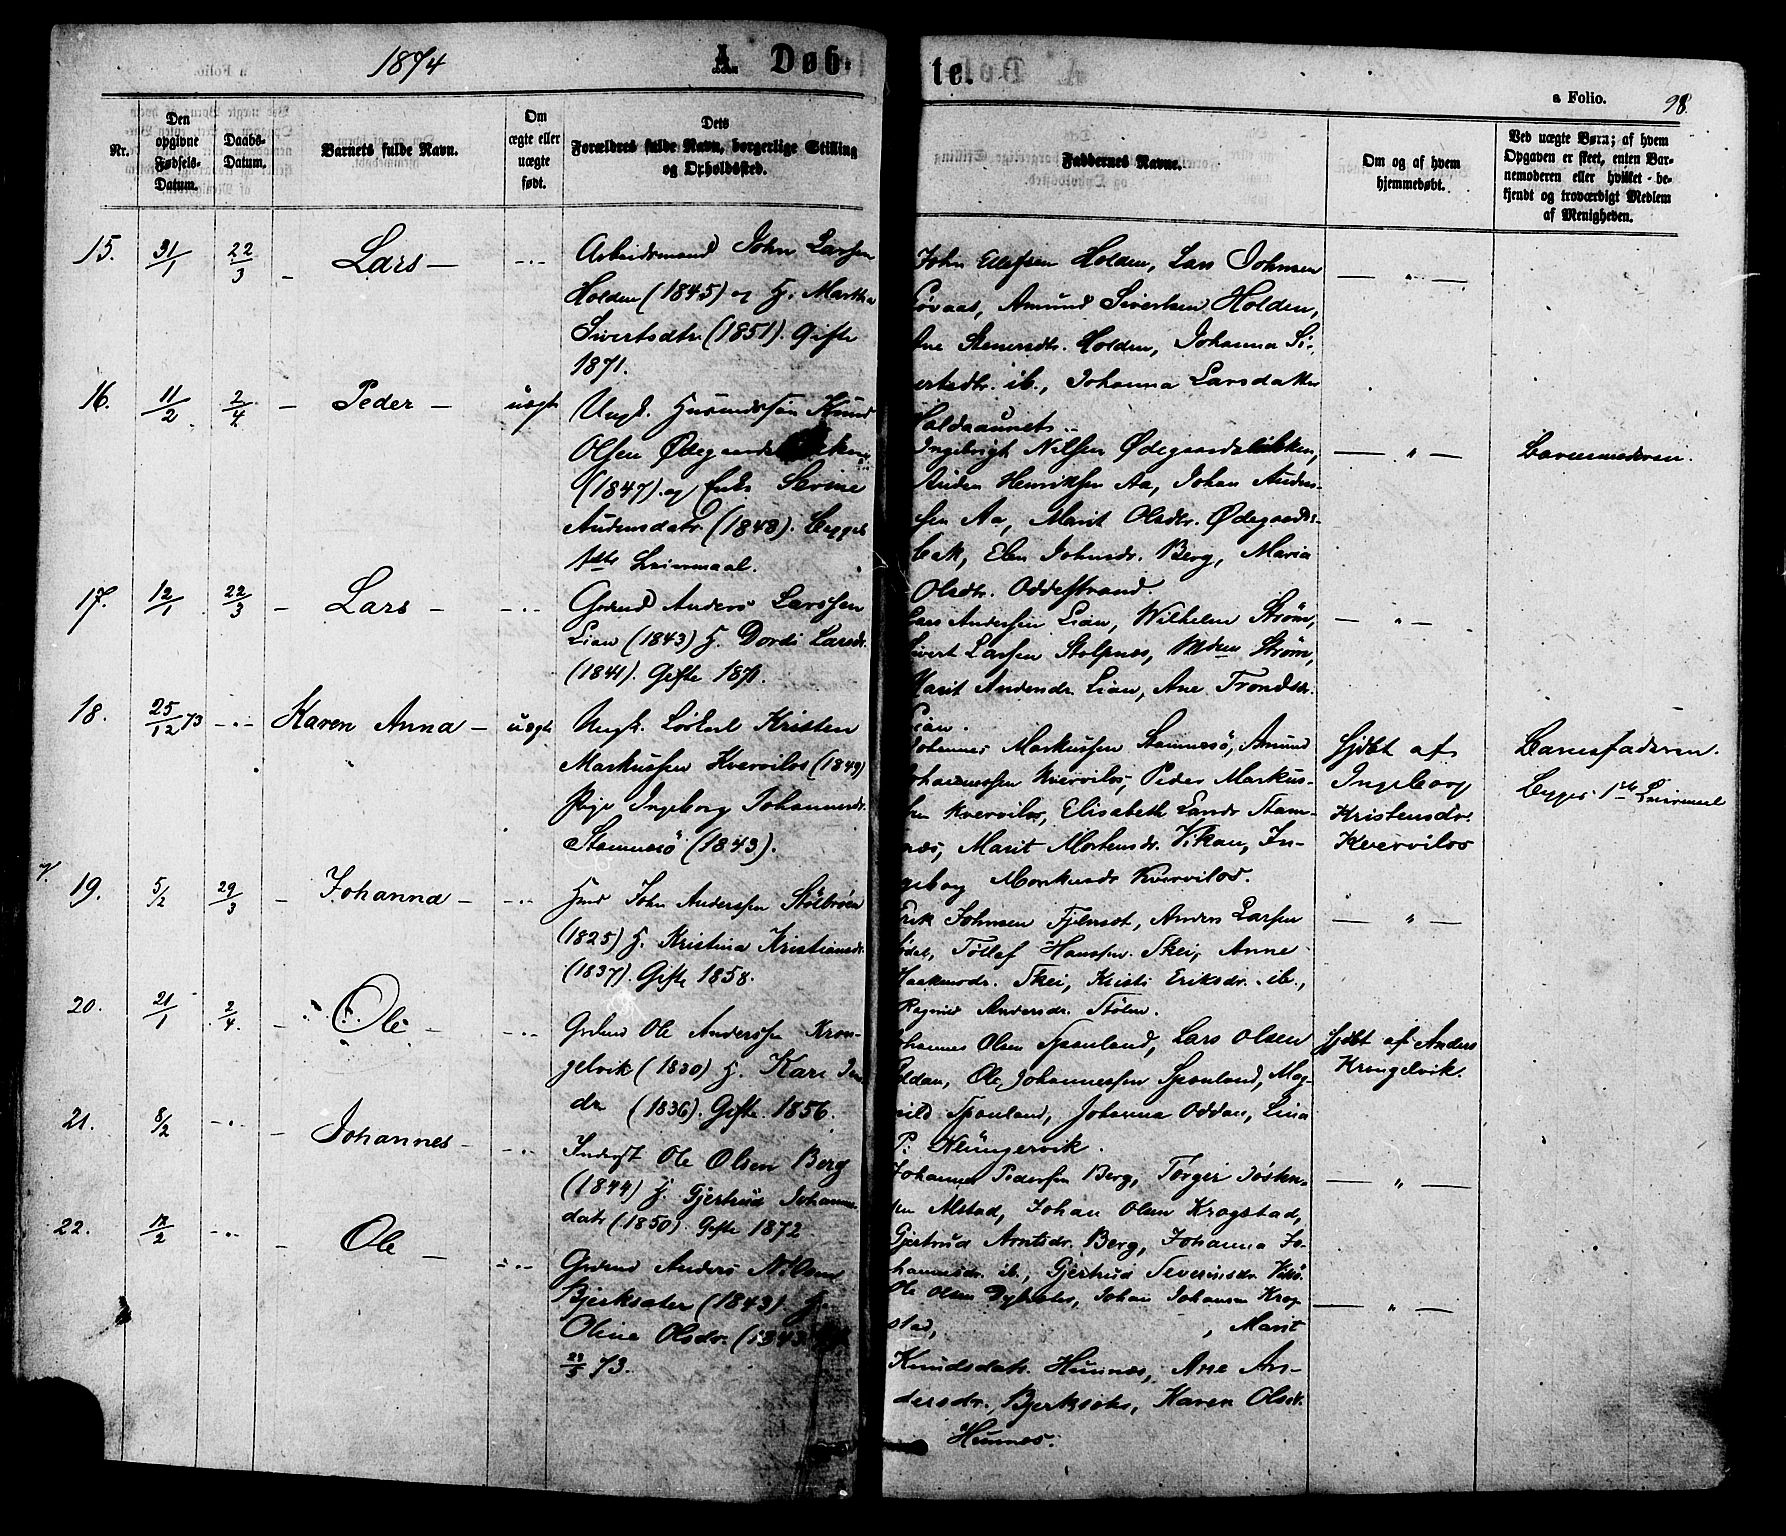 1874
A. Døb-
te.
a Folio.
98.
Nr.
Den opgivne Fødsels-Datum.
Daabs-Datum.
Barnets fulde Navn.
Om ægte eller uægte født.
Dets Forældres fulde Navn, borgerlige Stilling og Opholdssted.
Faddernes Navne.
Om og af hvem hjemmedøbt.
Ved uægte Børn; af hvem Opgaven er skeet, enten Barnemoderen eller hvilket bekjendt og troværdigt Medlem af Menigheden.
15. 31/1 22/3 – Lars – -"-
Arbeidsmand John Larssen
Holden (1845) og H. Martha
Sivertsdtr (1851). Gifte
1871.
John Ellefsen Holden, Lars Johnsen
Amund Sivertsen Holden,
Stenersdtr. Holden, Johanna Si-
ertsdtr. ib., Johanna Larsdatter
Holdaaunet.
— " —
16. 11/2 2/4 – Peder – uægte
Ungk. Huusmdssøn Knud
Olsen Ødegaards
(1847) og Enke Serine
Audensdatr. (1848). Begges
1ste Leiermaal.
Ingebrigt Nilsen Ødegaardsbakken,
Auden Henriksen Aa, Johan Audens-
sen Aa, Marit Olsdtr. Ødegaards-
bak, Elen Johnsdr. Berg, Maria
Olsdtr. Oddestrand.
— " —
Barnemoderen.
17. 12/1 22/3 – Lars – -"-
Grdmd Anders Larssen
Lian (1843) H. Dordi Larsdr.
(1841). Gifte 1870.
Lars Andersen Lian, Wilhelm Strøm,
Sivert Larssen Stolpnæs, Mdm Strøm,
Marit Andersdr. Lian, Ane Trondsdr.
Lian.
— " —
18. 25/12 73 -"- Karen Anna – uægte
Ungk. Løskarl Kristen
Markussen Kvervilos (1849)
Pige Ingeborg Johannesdr.
Stamnesø (1843).
Johannes Markussen Stamnesø, Amund
Johannessen Kvervilos, Peder Markus-
sen Kvervilos, Elisabeth Lands Stam-
næs, Marit Mortensdr. Vikan, In-
geborg Markusdr Kvervilos.
Hjdbt af
Ingeborg
Kristensdr.
Kvervilos
Barnefaderen.
Begges 1ste Leiermaal
19. 5/2 29/3 – Johanna – -"-
Hmd John Anderssen Stölbröen
(1825) H. Kristina Kristiansdr.
(1837). Gifte 1858.
Erik Johnsen Fjelnset, Anders Larsen
Tøllef Hanssen Skei, Anne
Haakensdr. Skei, Kristi Eriksdr. ib.,
Ragnild Andersdr. Stölen.
— " —
20. 21/1 2/4 – Ole – -"-
Grdmd Ole Anderssen Kron-
gelvik (1830) H. Kari Jens
dr (1836). Gifte 1856.
Johannes Olsen Spanland, Lars Olsen
Oddan, Ole Johannessen Spanland, Mag-
nild Spanland, Johanna Oddan, Lina
P. Klüngervik.
Hjdbt af Anders
Krongelvik.
21. 8/2 -"- – Johannes – -"-
Inderst Ole Olsen Berg
(1844) H. Gjertrud Johannes
datr (1850). Gifte 1872
Johannes Pedersen Berg, Torger
sen Alstad, Johan Olsen Krogstad,
Gjertrud Arntsdr. Berg, Johanna Jo-
hannesdr. ib., Gjertrud Severinsdr.
— " —
22. 12/2 -"- – Ole – -"-
Grdmd Anders Nilsen
Bjerksater (1843) H.
Oline Olsdr. (1843)
23/5 73.
Ole Olsen Johan Johansen Krog
stad, , Marit
Knudsdatr. Hunnes, Ane An-
dersdr., Karen Olsdr.
Hunnes.